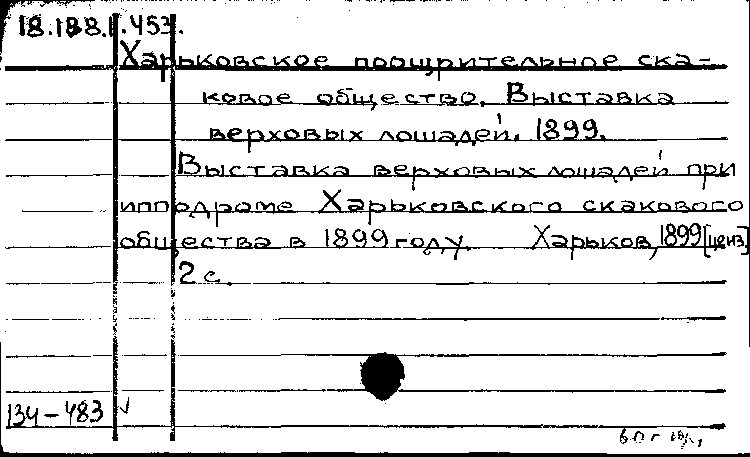 18.188.1.453.
Харьковское поощрительное ска-
ковое общество. Выставка
верховых лошадей. 1899.
Выставка верховых лошадей при
ипподроме Харьковского скакового
общества в 1899 году. Харьков, 1899 [ценз.]
2 с.
134-483 √